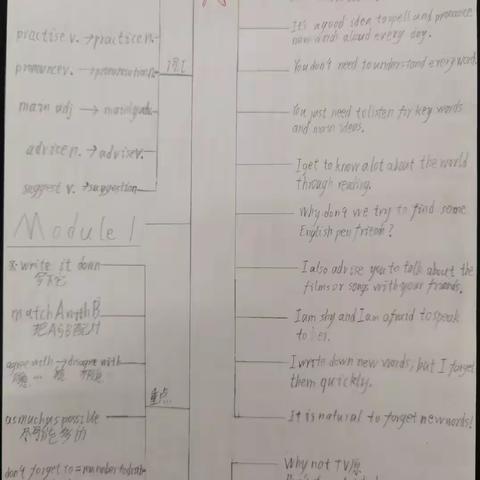 practise v. → practice n.
pronounce v. → pronunciation n.
词汇
main adj → mainly adv.
advice n. → advise v.
suggest v. → suggestion
Module 1
※ write it down
写下它
match A with B
把A与B配对
agree with → disagree with
as much as possible
尽可能多的
重点
don't forget to = remember to do
It's a good idea to spell and pronounce
new words aloud every day.
You don't need to understand every word.
You just need to listen for key words
and main ideas.
I get to know a lot about the world
through reading.
Why don't we try to find some
English pen friends?
I also advise you to talk about the
films or songs with your friends.
I am shy and I am afraid to speak
to her.
I write down new words, but I forget
them quickly.
It is natural to forget new words!
Why not TV原